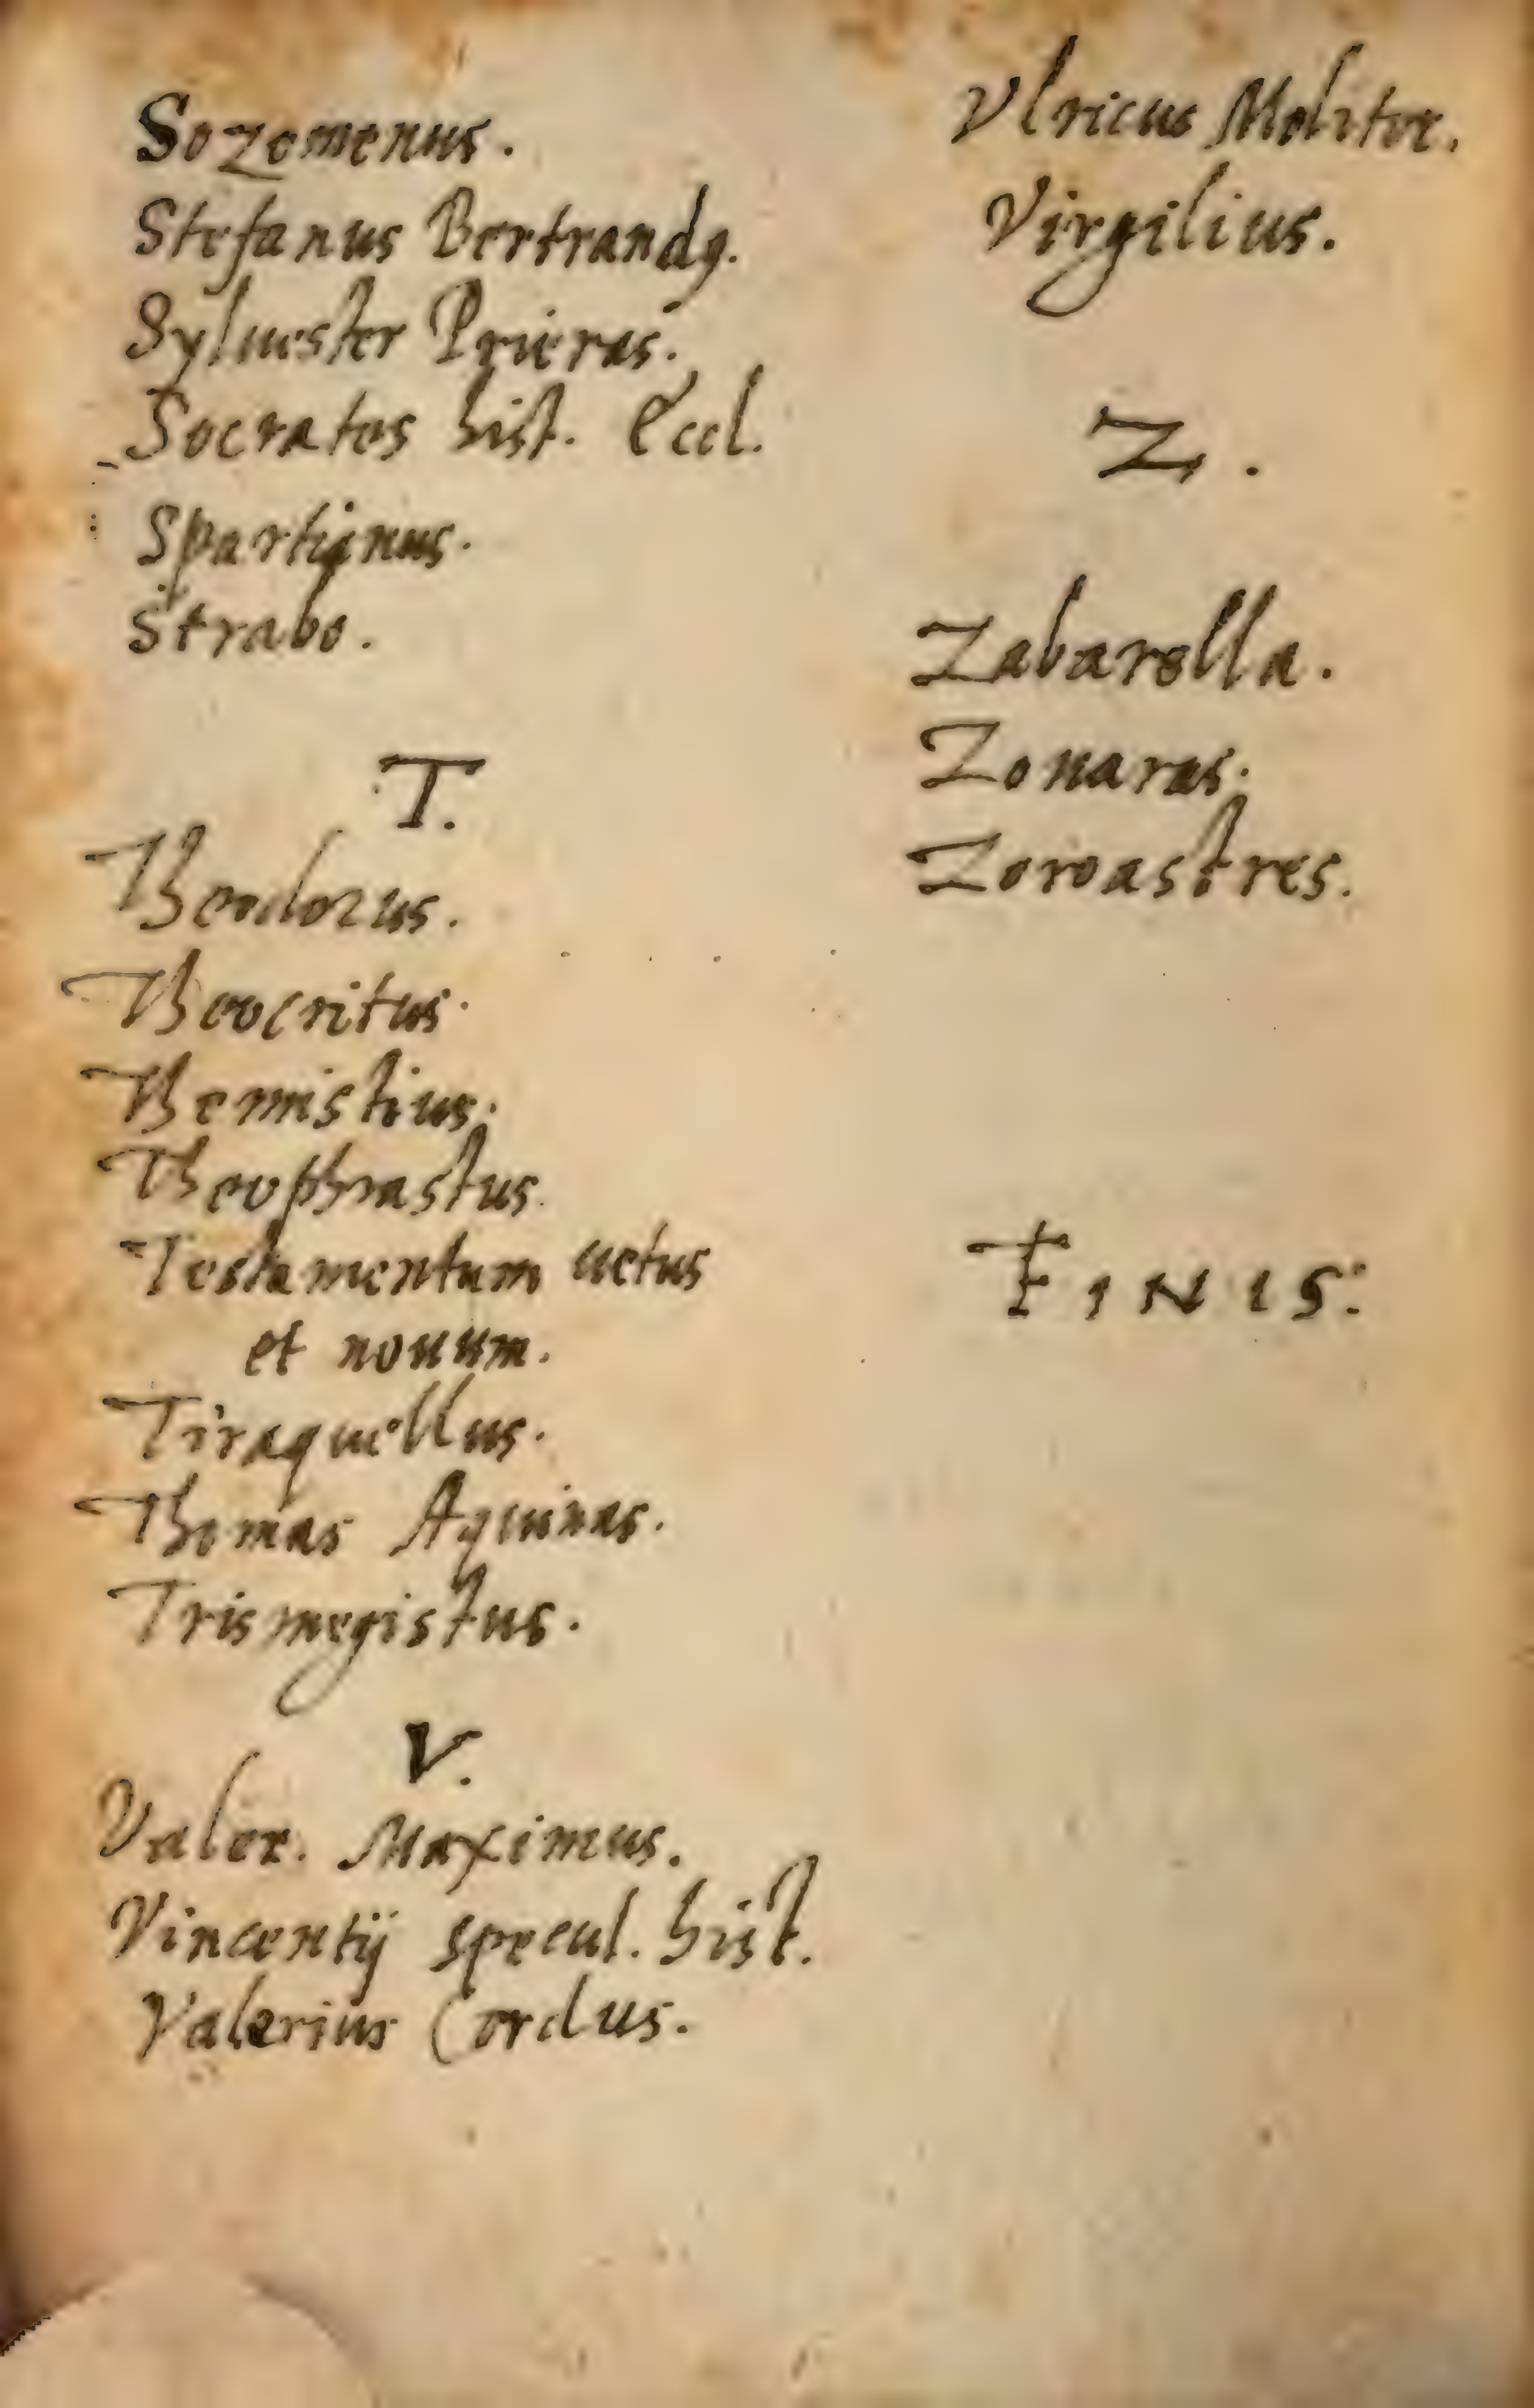 Sozomenus.
Stefanus Bertrandq.
Syluester Prieras.
Socrates hist. Eccl.
Spartianus.
Strabo.
T.
Theodorus.
Theocritus.
Themistius.
Theophrastus.
Testamentum uetus
et nouum.
Tiraquellus.
Thomas Aquinas.
Trismegistus.
V.
Valer. Maximus.
Vincentij specul. hist.
Valerius Cordus.
Vlricus Molitor.
Virgilius.
Z.
Zabarella.
Zonaras.
Zoroastres.
FINIS: